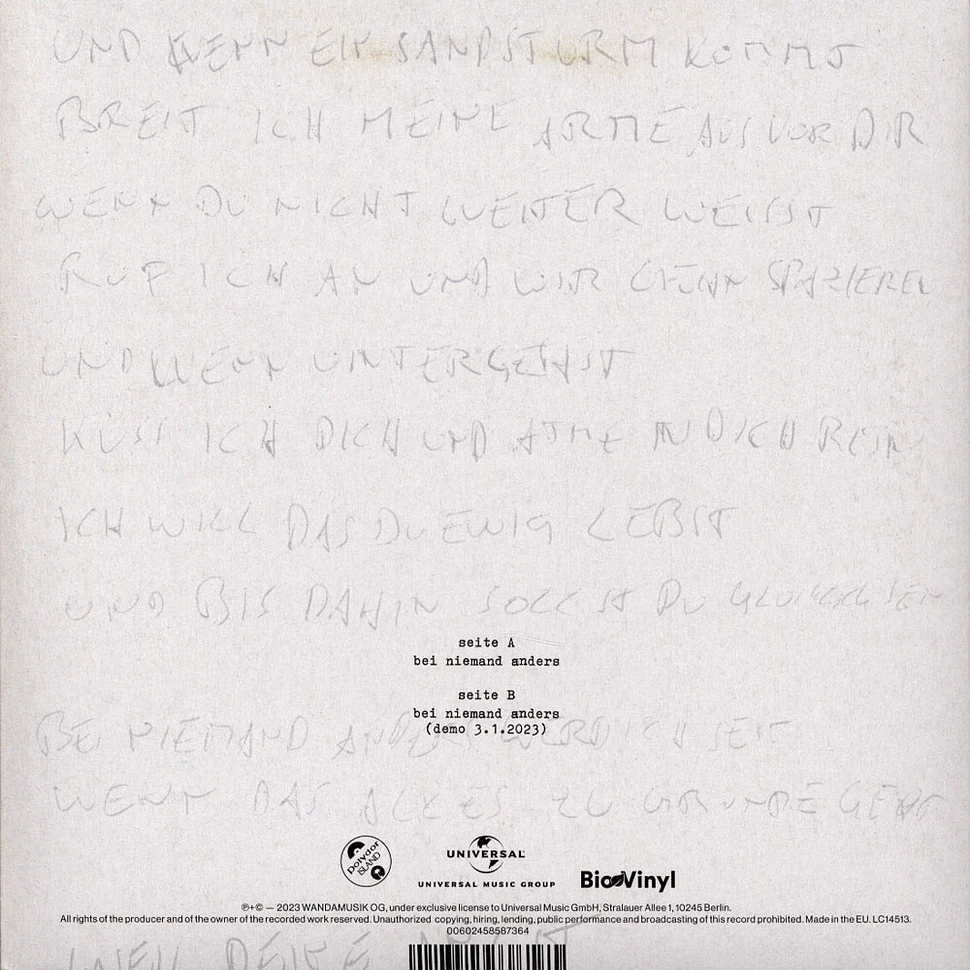 UND WENN EIN SANDSTURM KOMMT
BREIT ICH MEINE ARME AUS VOR DIR
WENN DU NICHT WEITER WEISST
RUF ICH AN UND WIR GEHN SPAZIEREN
UND WENN UNTERGEHST
KÜSS ICH DICH UND ATME IN DICH REIN
ICH WILL DAS DU EWIG LEBST
UND BIS DAHIN SOLLST DU GLÜCKLICH SEIN
seite A
bei niemand anders
seite B
bei niemand anders
(demo 3.1.2023)
BEI NIEMAND ANDERS WERD ICH SEIN
WENN DAS ALLES ZU GRUNDE GEHT
Polydor
ISLAND
UNIVERSAL
UNIVERSAL MUSIC GROUP
BioVinyl
℗+© — 2023 WANDAMUSIK OG, under exclusive license to Universal Music GmbH, Stralauer Allee 1, 10245 Berlin.
All rights of the producer and of the owner of the recorded work reserved. Unauthorized copying, hiring, lending, public performance and broadcasting of this record prohibited. Made in the EU. LC14513.
00602458587364
WEIL DEINE